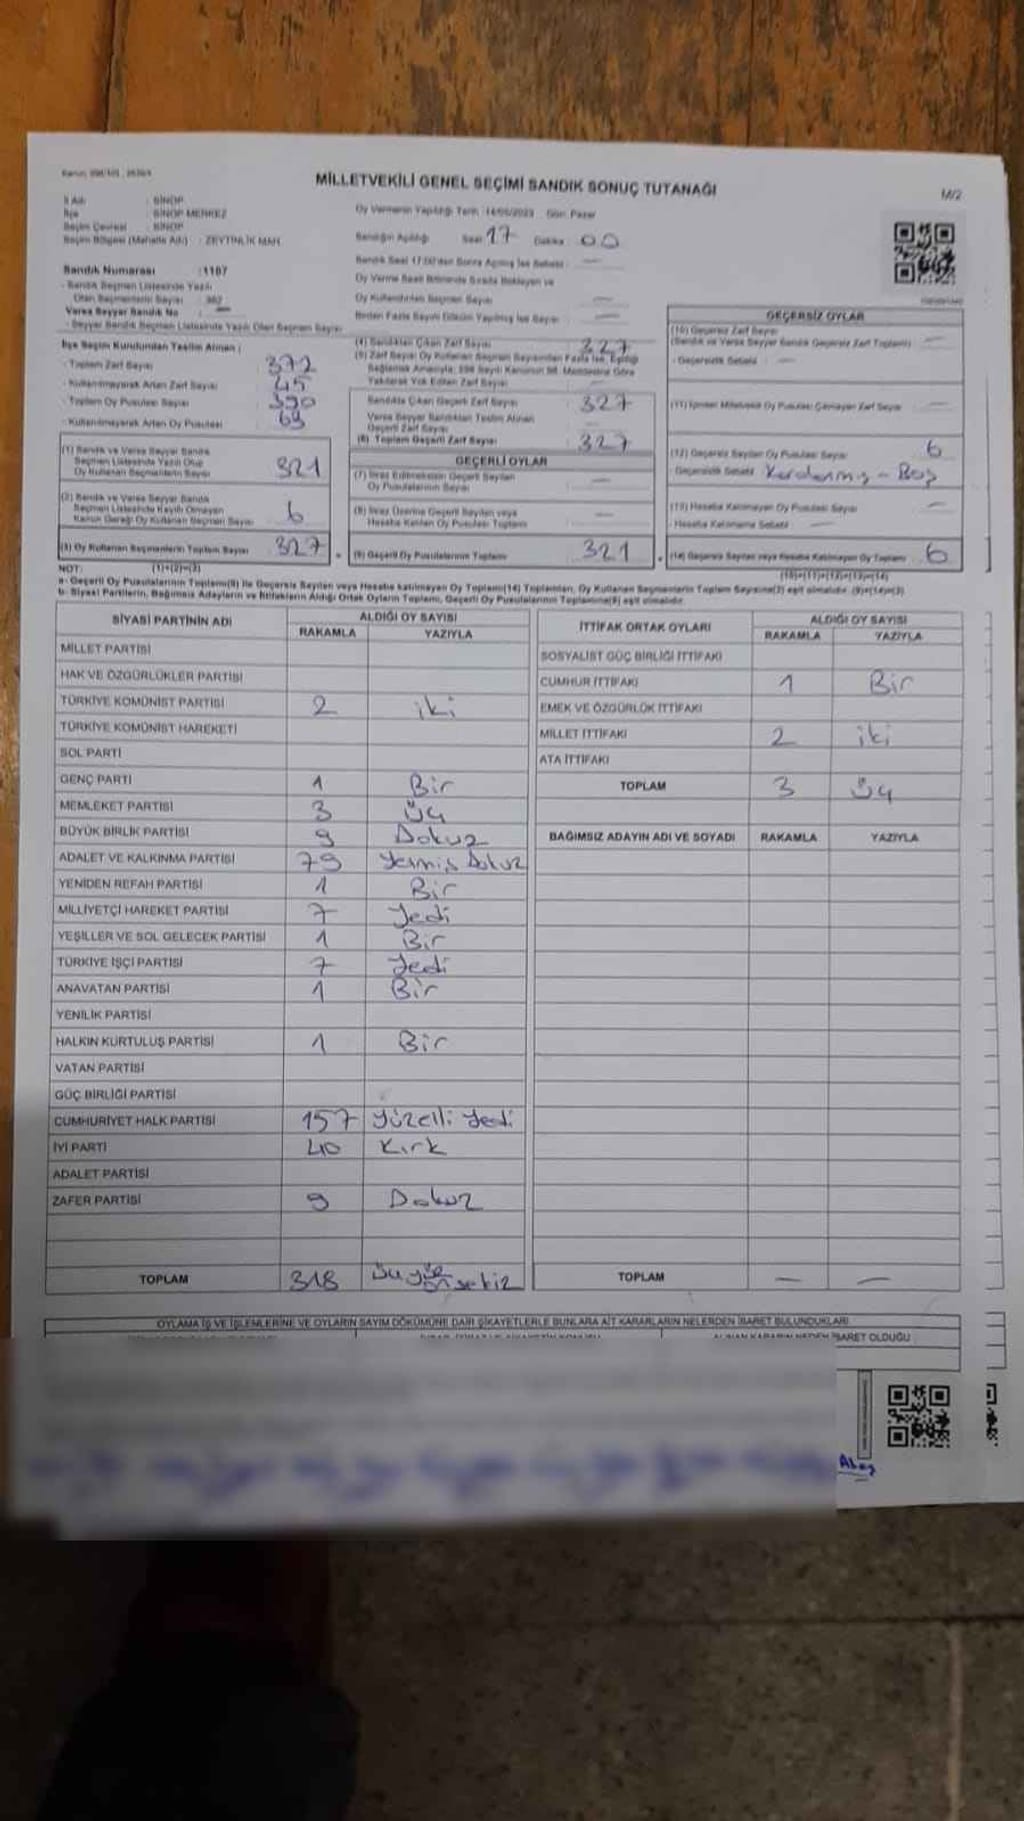 MİLLETVEKİLİ GENEL SEÇİMİ SANDIK SONUÇ TUTANAĞI
M/2
İl Adı : SİNOP
İlçe : SİNOP MERKEZ
Seçim Çevresi : SİNOP
Seçim Bölgesi (Mahalle Adı) : ZEYTİNLİK MAH.
Oy Vermenin Yapıldığı Tarih : 14/05/2023 Gün: Pazar
Sandığın Açıldığı Saat 17 Dakika 00
Sandık Saat 17:00'den Sonra Açılmış İse Sebebi : —
Oy Verme Saati Bitiminde Sırada Bekleyen ve
Oy Kullandırılan Seçmen Sayısı —
Birden Fazla Sayım Döküm Yapılmış İse Sayısı —
Sandık Numarası : 1107
- Sandık Seçmen Listesinde Yazılı
Olan Seçmenlerin Sayısı
Varsa Seyyar Sandık No : —
- Seyyar Sandık Seçmen Listesinde Yazılı Olan Seçmen Sayısı
İlçe Seçim Kurulundan Teslim Alınan :
- Toplam Zarf Sayısı 372
- Kullanılmayarak Artan Zarf Sayısı 45
- Toplam Oy Pusulası Sayısı 390
- Kullanılmayarak Artan Oy Pusulası 63
(1) Sandık ve Varsa Seyyar Sandık
Seçmen Listesinde Yazılı Olup
Oy Kullanan Seçmenlerin Sayısı 321
(2) Sandık ve Varsa Seyyar Sandık
Seçmen Listesinde Kayıtlı Olmayan
Kanun Gereği Oy Kullanan Seçmen Sayısı 6
(3) Oy Kullanan Seçmenlerin Toplam Sayısı 327
(1)+(2)=(3)
(4) Sandıktan Çıkan Zarf Sayısı 327
(5) Zarf Sayısı Oy Kullanan Seçmen Sayısından Fazla İse, Eşitliği
Sağlamak Amacıyla, 298 Sayılı Kanunun 98. Maddesine Göre
Yakılarak Yok Edilen Zarf Sayısı —
Sandıkta Çıkan Geçerli Zarf Sayısı 327
Varsa Seyyar Sandıktan Teslim Alınan
Geçerli Zarf Sayısı —
(6) Toplam Geçerli Zarf Sayısı 327
GEÇERLİ OYLAR
(7) İtiraz Edilmeksizin Geçerli Sayılan
Oy Pusulalarının Sayısı —
(8) İtiraz Üzerine Geçerli Sayılan veya
Hesaba Katılan Oy Pusulası Toplamı —
(9) Geçerli Oy Pusulalarının Toplamı 321
GEÇERSİZ OYLAR
(10) Geçersiz Zarf Sayısı
(Sandık ve Varsa Seyyar Sandık Geçersiz Zarf Toplamı) —
- Geçersizlik Sebebi —
(11) İçinden Milletvekili Oy Pusulası Çıkmayan Zarf Sayısı —
(12) Geçersiz Sayılan Oy Pusulası Sayısı 6
- Geçersizlik Sebebi Karalanmış - Boş
(13) Hesaba Katılmayan Oy Pusulası Sayısı —
- Hesaba Katılmama Sebebi —
(14) Geçersiz Sayılan veya Hesaba Katılmayan Oy Toplamı 6
(10)+(11)+(12)+(13)=(14)
NOT:
a- Geçerli Oy Pusulalarının Toplamı(9) ile Geçersiz Sayılan veya Hesaba katılmayan Oy Toplamı(14) Toplamları, Oy Kullanan Seçmenlerin Toplam Sayısına(3) eşit olmalıdır. (9)+(14)=(3)
b- Siyasi Partilerin, Bağımsız Adayların ve İttifakların Aldığı Ortak Oyların Toplamı, Geçerli Oy Pusulalarının Toplamına(9) eşit olmalıdır.
SİYASİ PARTİNİN ADI ALDIĞI OY SAYISI
RAKAMLA YAZIYLA
MİLLET PARTİSİ
HAK VE ÖZGÜRLÜKLER PARTİSİ
TÜRKİYE KOMÜNİST PARTİSİ 2 iki
TÜRKİYE KOMÜNİST HAREKETİ
SOL PARTİ
GENÇ PARTİ 1 Bir
MEMLEKET PARTİSİ 3 üç
BÜYÜK BİRLİK PARTİSİ 9 Dokuz
ADALET VE KALKINMA PARTİSİ 79 Yetmiş Dokuz
YENİDEN REFAH PARTİSİ 1 Bir
MİLLİYETÇİ HAREKET PARTİSİ 7 Yedi
YEŞİLLER VE SOL GELECEK PARTİSİ 1 Bir
TÜRKİYE İŞÇİ PARTİSİ 7 Yedi
ANAVATAN PARTİSİ 1 Bir
YENİLİK PARTİSİ
HALKIN KURTULUŞ PARTİSİ 1 Bir
VATAN PARTİSİ
GÜÇ BİRLİĞİ PARTİSİ
CUMHURİYET HALK PARTİSİ 157 Yüzelli Yedi
İYİ PARTİ 40 Kırk
ADALET PARTİSİ
ZAFER PARTİSİ 9 Dokuz
TOPLAM 318 üçyüz onsekiz
İTTİFAK ORTAK OYLARI ALDIĞI OY SAYISI
RAKAMLA YAZIYLA
SOSYALİST GÜÇ BİRLİĞİ İTTİFAKI
CUMHUR İTTİFAKI 1 Bir
EMEK VE ÖZGÜRLÜK İTTİFAKI
MİLLET İTTİFAKI 2 iki
ATA İTTİFAKI
TOPLAM 3 üç
BAĞIMSIZ ADAYIN ADI VE SOYADI RAKAMLA YAZIYLA
TOPLAM — —
OYLAMA İŞ VE İŞLEMLERİNE VE OYLARIN SAYIM DÖKÜMÜNE DAİR ŞİKAYETLERLE BUNLARA AİT KARARLARIN NELERDEN İBARET BULUNDUKLARI
ALINAN KARARIN NEDEN İBARET OLDUĞU